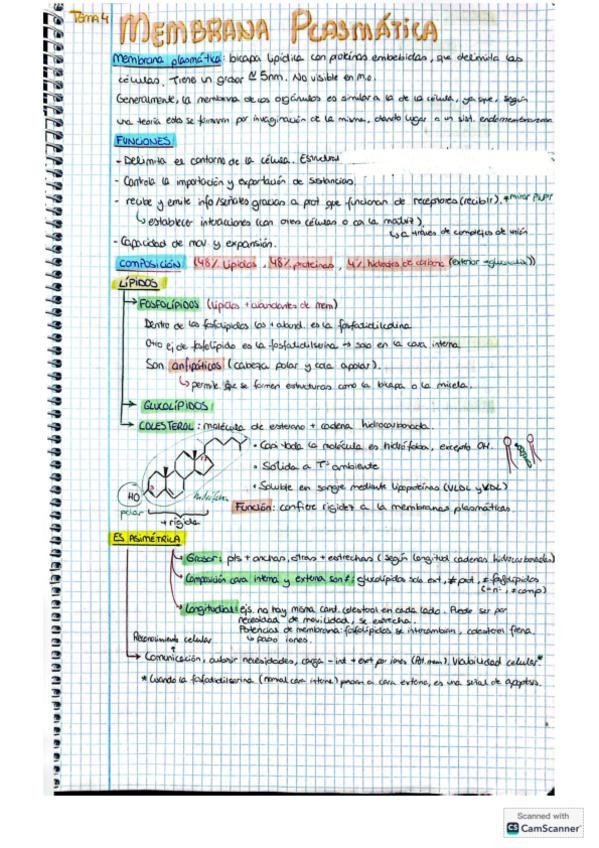 Tema 4
MEMBRANA PLASMÁTICA
Membrana plasmática: bicapa lipídica con proteínas embebidas, que delimita las
células. Tiene un grosor ≈ 5nm. No visible en m.o.
Generalmente, la membrana de los orgánulos es similar a la de la célula, ya que, según
una teoría estos se formaron por invaginación de la misma, dando lugar a un sist. endomembranoso
FUNCIONES
- Delimita es contorno de la célula. Estructural
- Controla la importación y exportación de sustancias.
- recibe y emite info/señales gracias a prot que funcionan de receptores (recibir). *mirar
↳ establecer interacciones (con otras células o con la matriz)
↳ a través de complejos de unión
- Capacidad de mov y expansión.
COMPOSICIÓN (48% lípidos, 48% proteínas, 4% hidratos de carbono (exterior
LÍPIDOS
→ FOSFOLÍPIDOS (lípidos + abundantes de mem)
Dentro de los fosfolípidos los + abund. es la fosfatidilcolina
Otro ej de fosfolípido es la fosfatidilserina → solo en la cara interna
Son anfipáticos (cabeza polar y cola apolar).
↳ permite que se formen estructuras como la bicapa o la micela.
→ GLUCOLÍPIDOS
→ COLESTEROL: molécula de esterano + cadena hidrocarbonada.
• Casi toda la molécula es hidrófoba, excepto OH.
• Sólida a Tª ambiente
• Soluble en sangre mediante lipoproteínas (VLDL y LDL)
HO
polar
hidrófoba
+ rígida
Función: confiere rigidez a la membranas plasmáticas.
ES ASIMÉTRICA
→ Grosor: pts + anchas, otras + estrechas (según longitud cadenas hidrocarbonadas)
→ Composición cara interna y externa son ≠: glucolípidos solo ext, ≠ prot, ≠ fosfolípidos
→ Longitudinal: ejs. no hay misma cant. colesterol en cada lado. Puede ser por
necesidad de movilidad, se estrecha.
Potencial de membrana: fosfolípidos se intercambian, colesterol frena
↳ paso iones.
Reconocimiento celular
↑
→ Comunicación, cubrir necesidades, carga - int + ext por iones (Pot. mem). Viabilidad celular*
* Cuando la fosfatidilserina (normal cara interna) pasa a cara externa, es una señal de apoptosis.
Scanned with
CS CamScanner